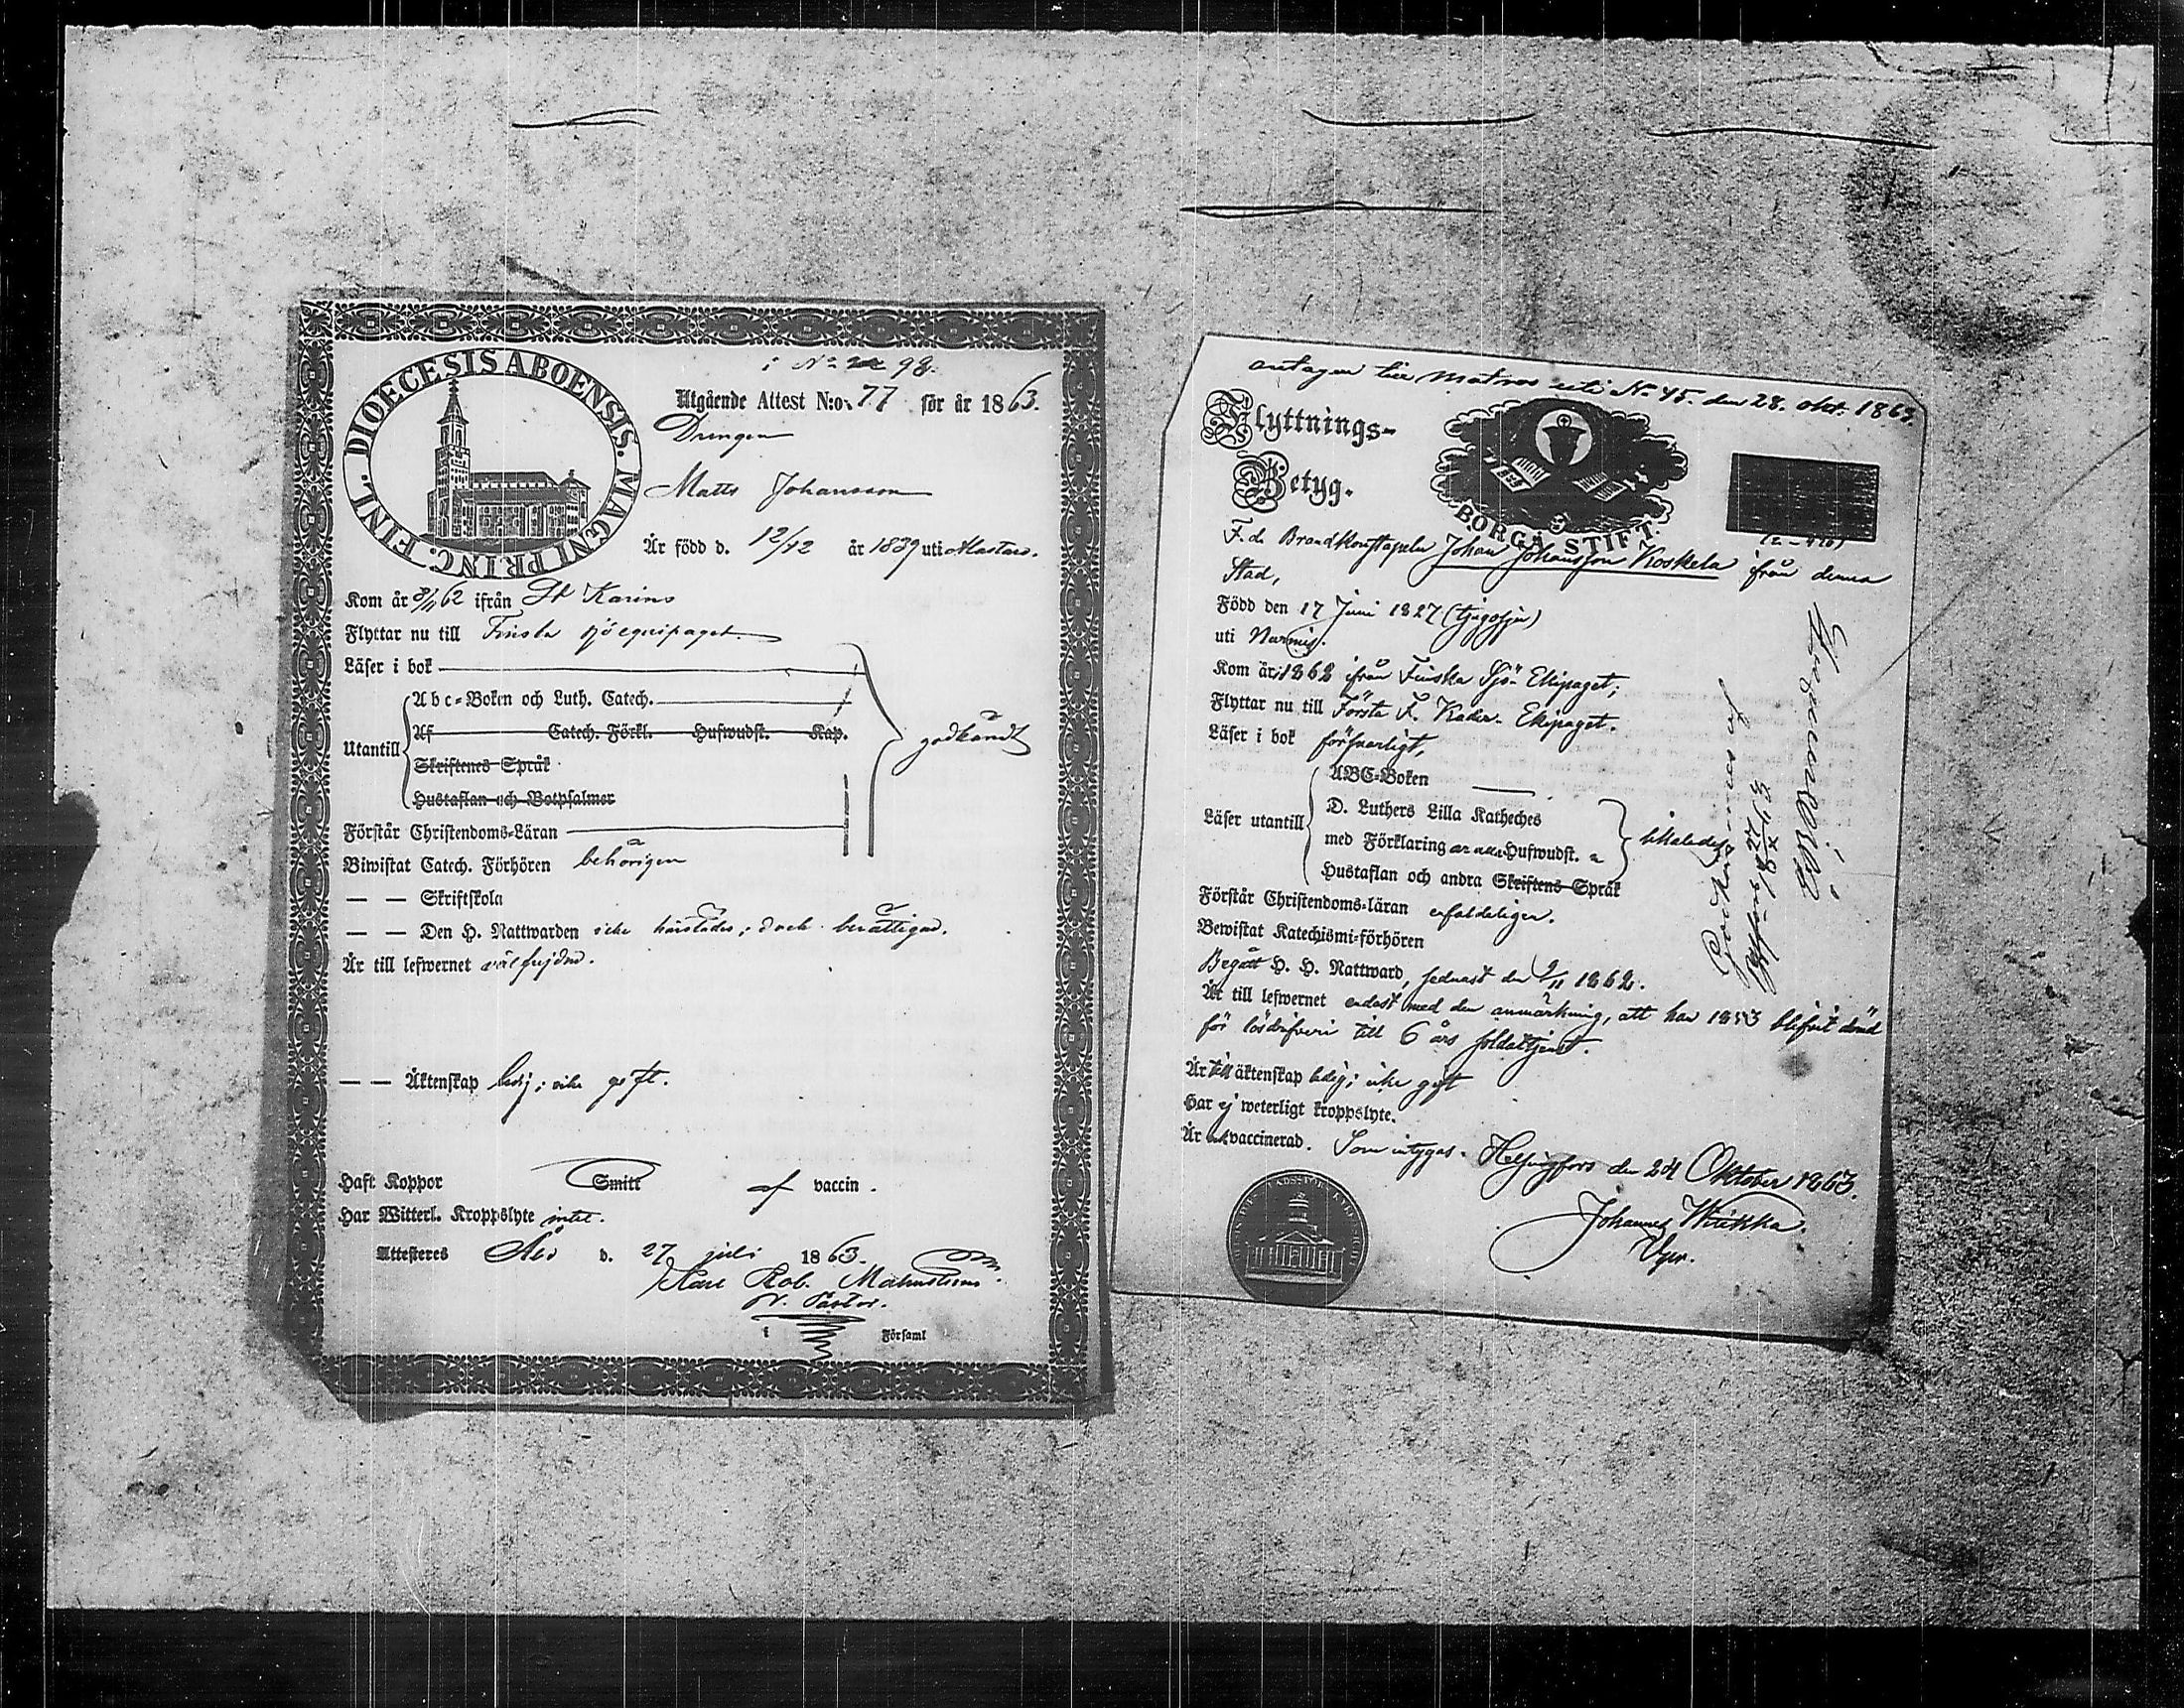 i No 98.
DIOECESIS ABOENSIS. MAGNI PRINC. FINL.
Utgående Attest N:o 77 för år 1863.
Drengen
Matts Johansson
Är född d. 12/12 år 1839 uti Mastars.
Kom år 3/11 62 ifrån St Karins
Flyttar nu till Finska sjöequipaget
Läser i bok
Utantill
Abc-Boken och Luth. Catech.
Af Catech. Förkl. Hufwudst. Kap.
Skriftenes Språk
Hustaflan och Botpsalmer
godkändt
Förstår Christendoms-Läran
Biwistat Catech. Förhören behörigen
— — Skriftskola
— — Den H. Nattwarden icke härstädes; dock berättigad.
Är till lefwernet välfrejdad.
— — Äktenskap ledig; icke gift.
Haft Koppor Smitt af vaccin.
Har Witterl. Kroppslyte intet.
Attesteres Åbo d. 27 juli 1863.
Karl Rob. Malmström
v. Pastor.
i Församl
antagen till Matros uti No 45. den 28. okt. 1863.
Flyttnings-
Betyg.
BORGÅ STIFT.
F. d. Brandkonstapeln Johan Johansson Koskela ifrån denna
Stad,
Född den 17 Juni 1827 (tjugosju)
uti Nurmis.
Kom år 1862 ifrån Finska Sjö-Ekipaget;
Flyttar nu till Första F. Kader-Ekipaget.
Läser i bok försvarligt,
Läser utantill
ABC-Boken
D. Luthers Lilla Katheches
med Förklaring Hufwudst.
Hustaflan och andra Skriftens Språk
Förstår Christendoms-läran enfaldeligen.
Bewistat Katechismi-förhören
Begått H. H. Nattward, sednast den 9/11 1862.
Är till lefwernet endast med den anmärkning, att han 1853 blifvit dömd
för lösdrifveri till 6 års soldattjenst.
Är till äktenskap ledig; icke gift
Har ej weterligt kroppslyte.
Är vaccinerad. Som intygas. Helsingfors den 24 Oktober 1863.
Johannes Wiikka.
Godkännes af
H:fors 27/X 1863